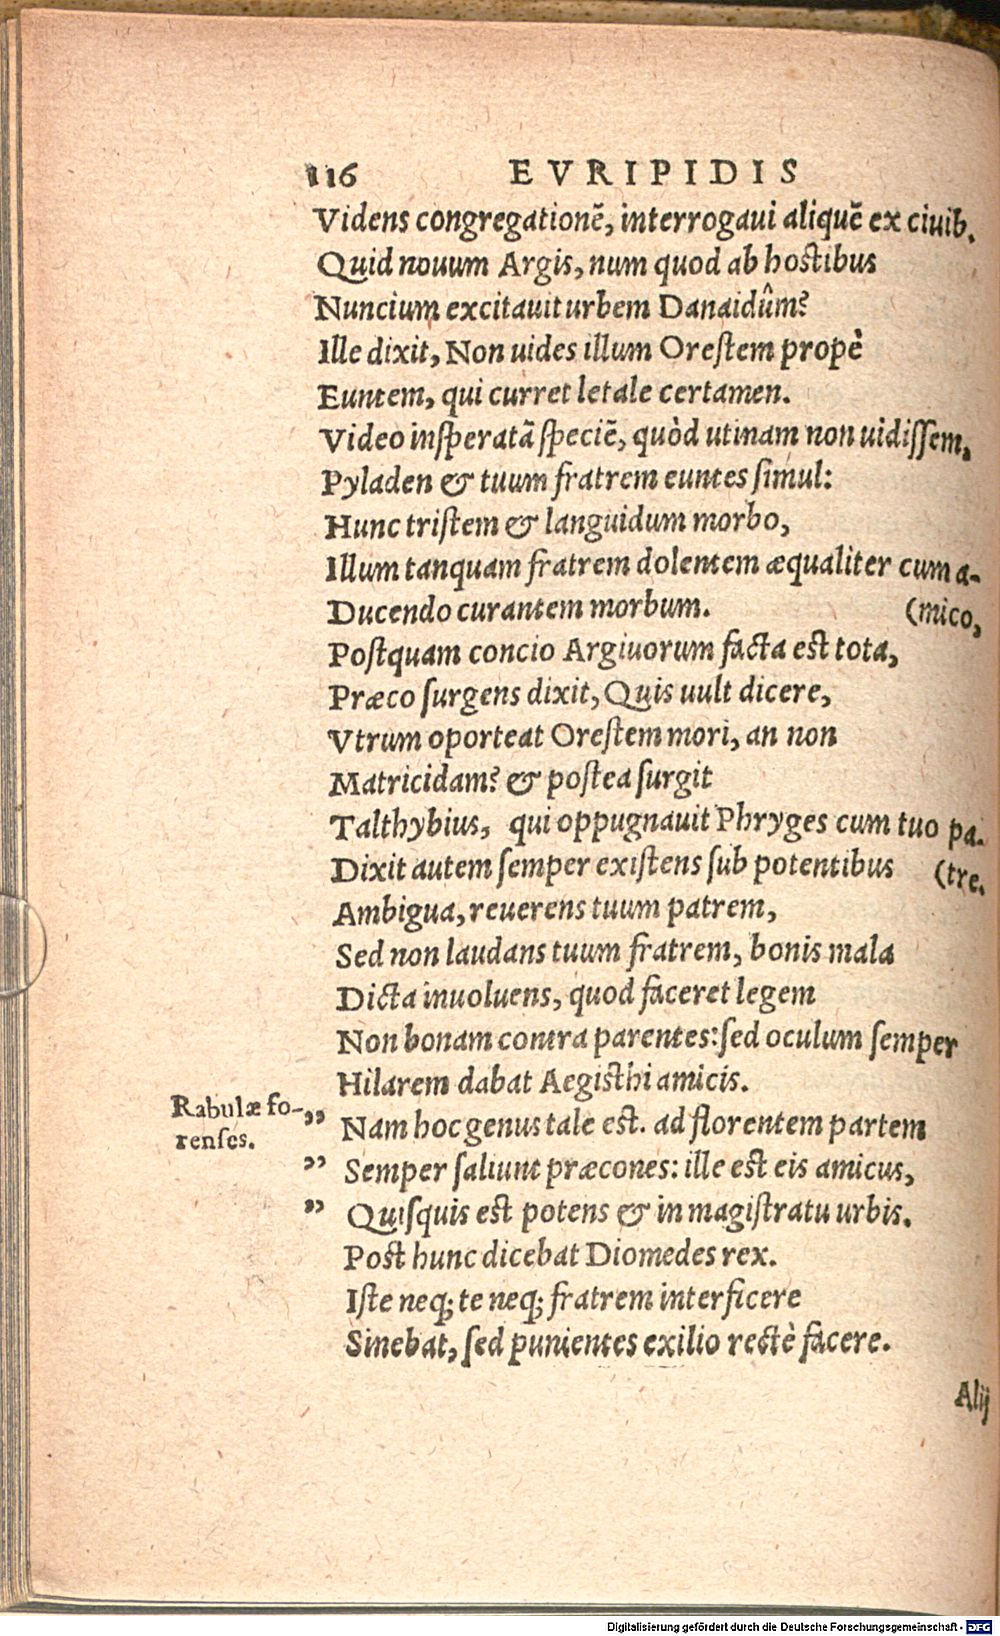 116 EVRIPIDIS
Videns congregationē, interrogaui aliquē ex ciuib.
Quid nouum Argis, num quod ab hostibus
Nuncium excitauit urbem Danaidûm?
Ille dixit, Non uides illum Oreſtem propè
Euntem, qui curret letale certamen.
Video inſperatã ſpeciē, quòd utinam non uidiſſem,
Pyladen & tuum fratrem euntes ſimul:
Hunc triſtem & languidum morbo,
Illum tanquam fratrem dolentem æqualiter cum a-
Ducendo curantem morbum. (mico,
Poſtquam concio Argiuorum facta est tota,
Præco ſurgens dixit, Quis uult dicere,
Vtrum oporteat Oreſtem mori, an non
Matricidam? & poſtea ſurgit
Talthybius, qui oppugnauit Phryges cum tuo pa-
Dixit autem ſemper exiſtens ſub potentibus (tre.
Ambigua, reuerens tuum patrem,
Sed non laudans tuum fratrem, bonis mala
Dicta inuoluens, quod faceret legem
Non bonam contra parentes: ſed oculum ſemper
Hilarem dabat Aegisthi amicis.
Rabulæ fo-
renſes.
„ Nam hoc genus tale est. ad florentem partem
„ Semper ſaliunt præcones: ille est eis amicus,
„ Quiſquis est potens & in magiſtratu urbis.
Post hunc dicebat Diomedes rex.
Iſte neq; te neq; fratrem interficere
Sinebat, ſed punientes exilio rectè facere.
Alij
Digitalisierung gefördert durch die Deutsche Forschungsgemeinschaft - DFG